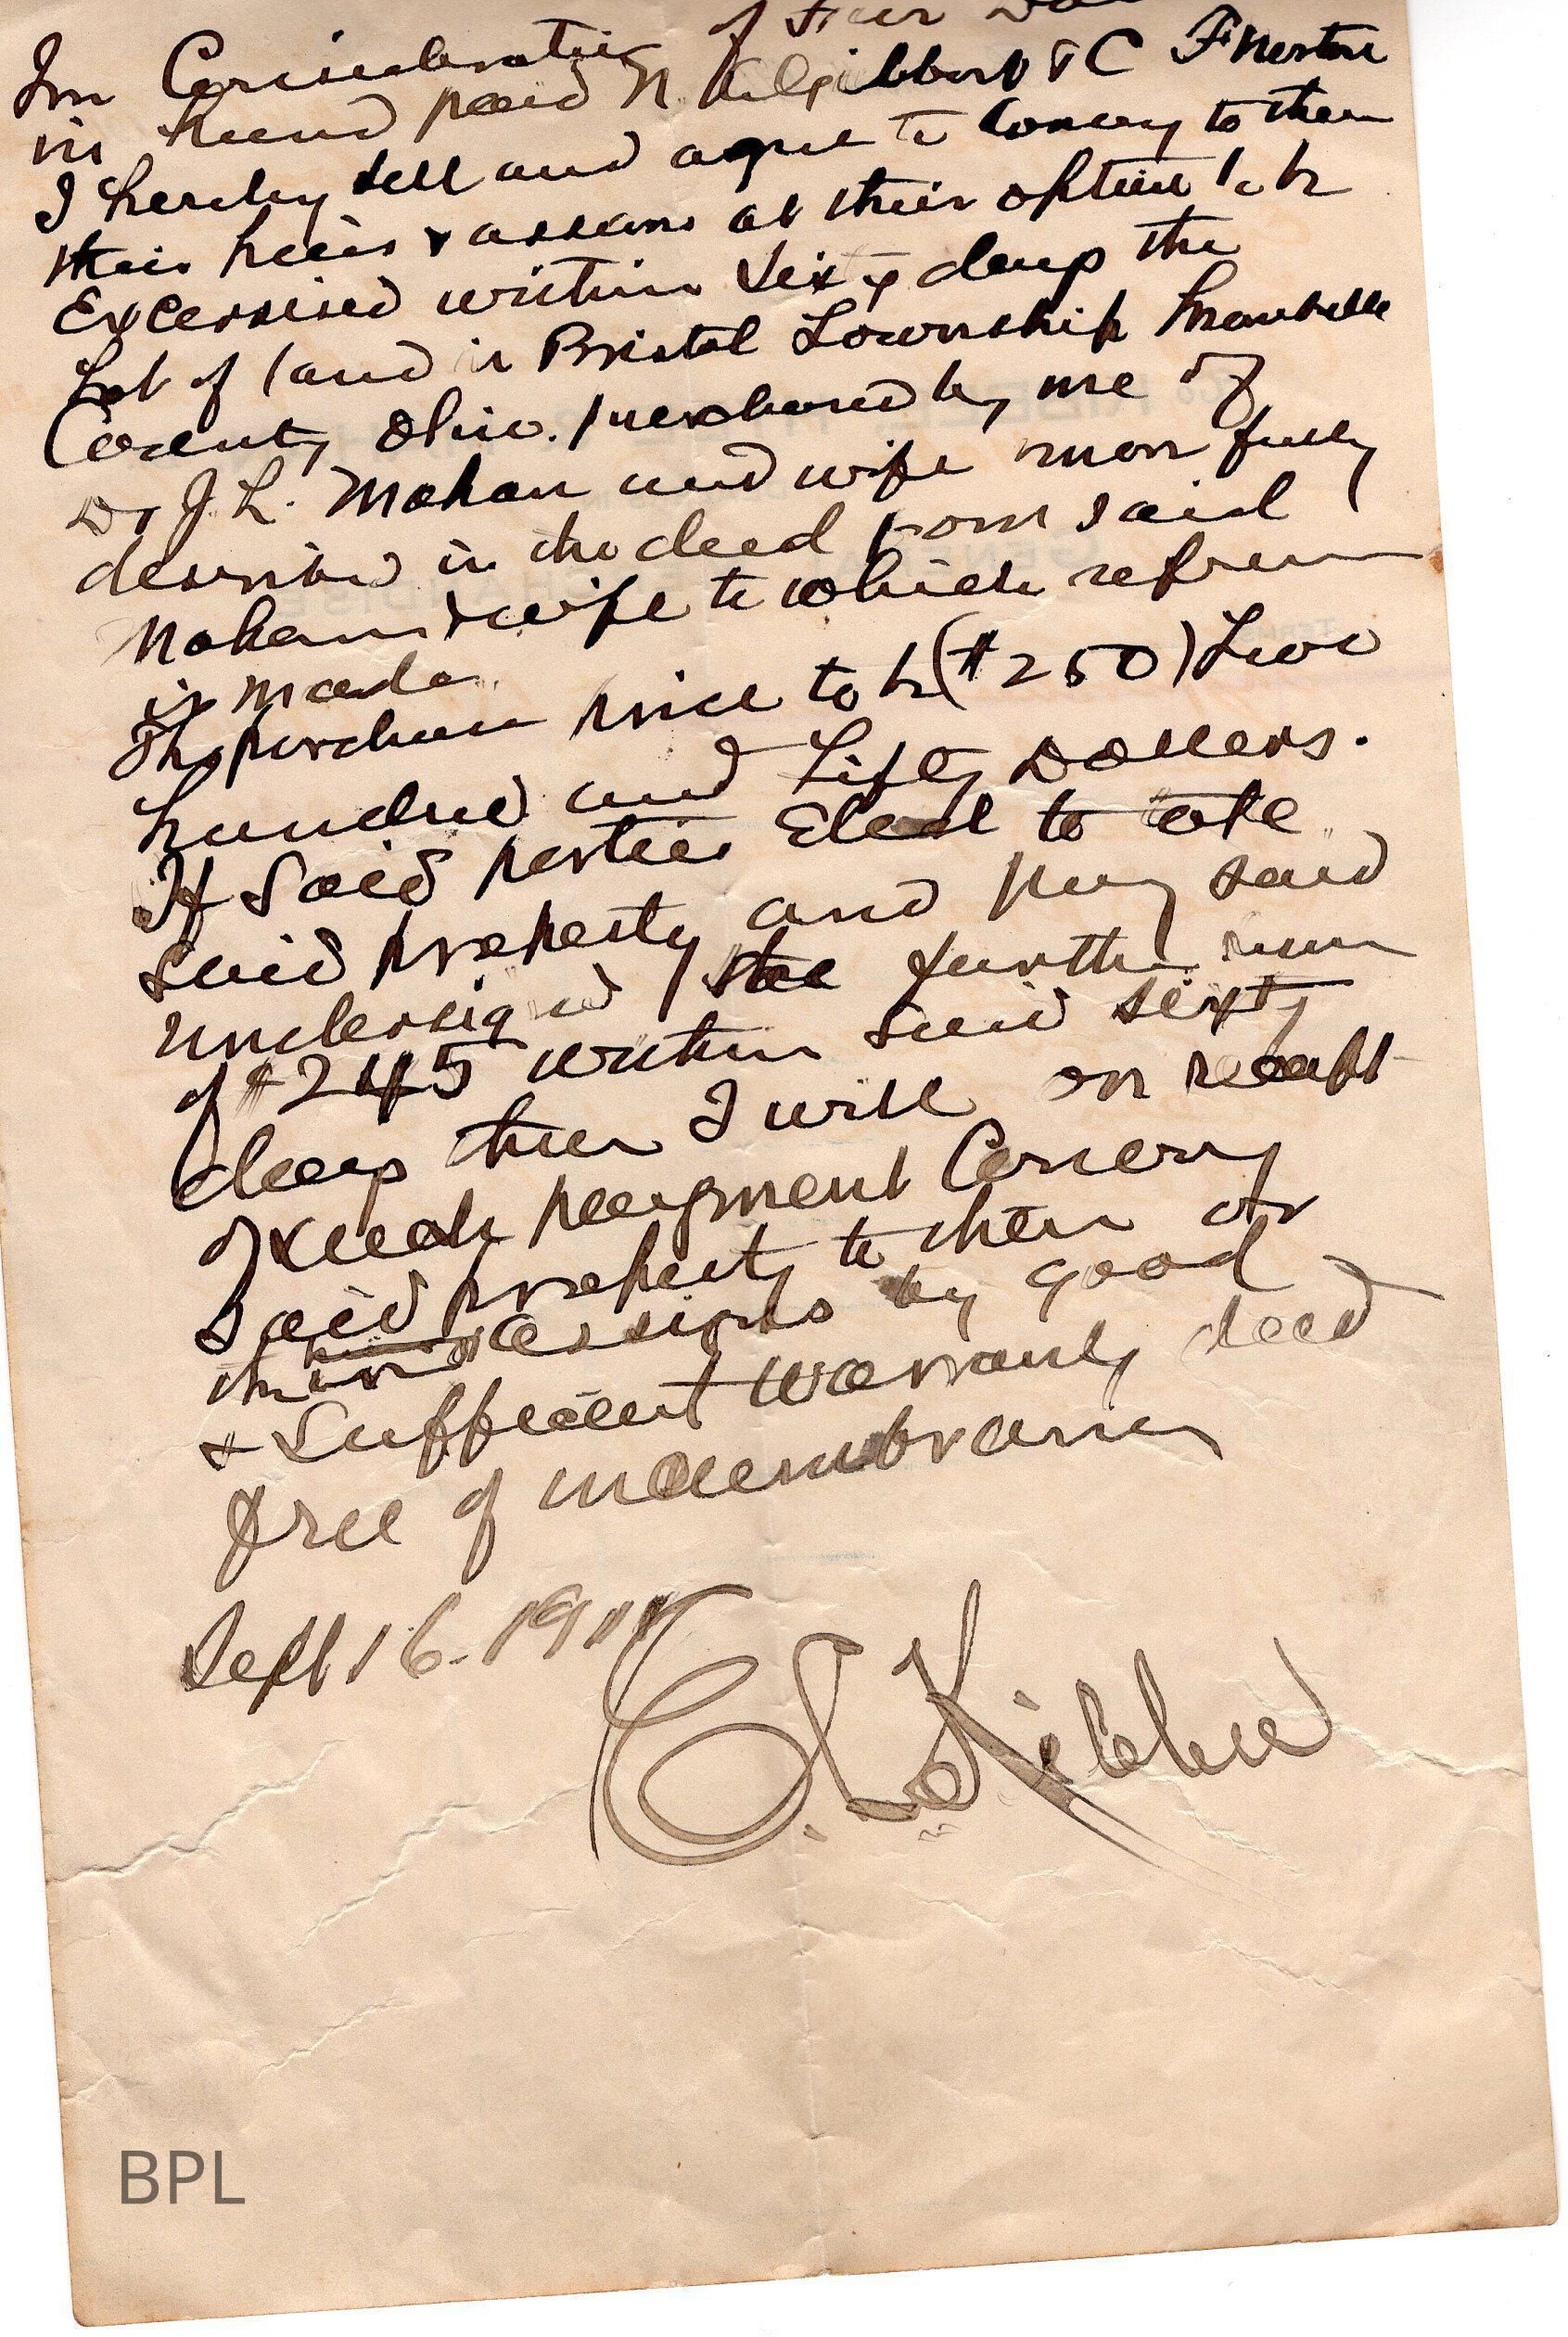 In Consideration of Five
in hand paid N A Gibbert & C F Norton
I hereby sell and agree to Convey to them
their heirs & assigns at their option to be
Excersised within Sixty days the
Lot of land in Bristol Township Trumbull
County Ohio. purchased by me of
Dr J. L. Mahan and wife more fully
described in the deed from said
Mahan & wife to which reference
is made.
The purchase price to be ($250) Two
hundred and Fifty Dollers.
If Said parties Elect to take
said property and pay said
undersigned the further sum
of $245 within said sixty
days then I will on receipt
of such payment Convey
Said property to them or
their assigns by good
& Sufficient warranty deed
free of incumbrances
Sept 16. 1911
Kibbee
BPL